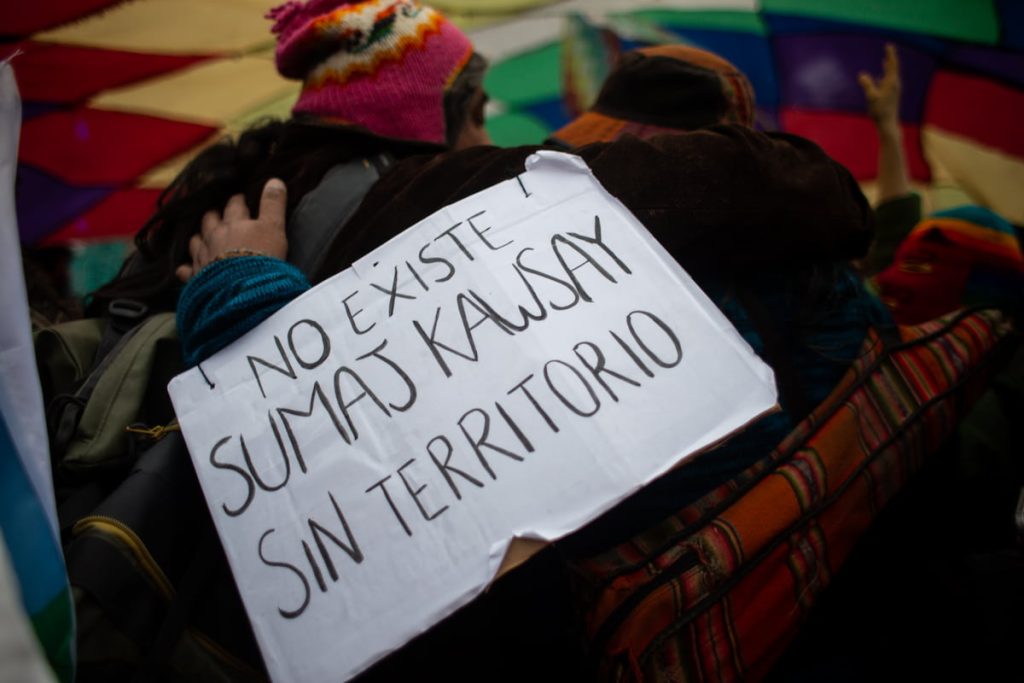 ! NO EXISTE !
SUMAJ KAWSAY
SIN TERRITORIO